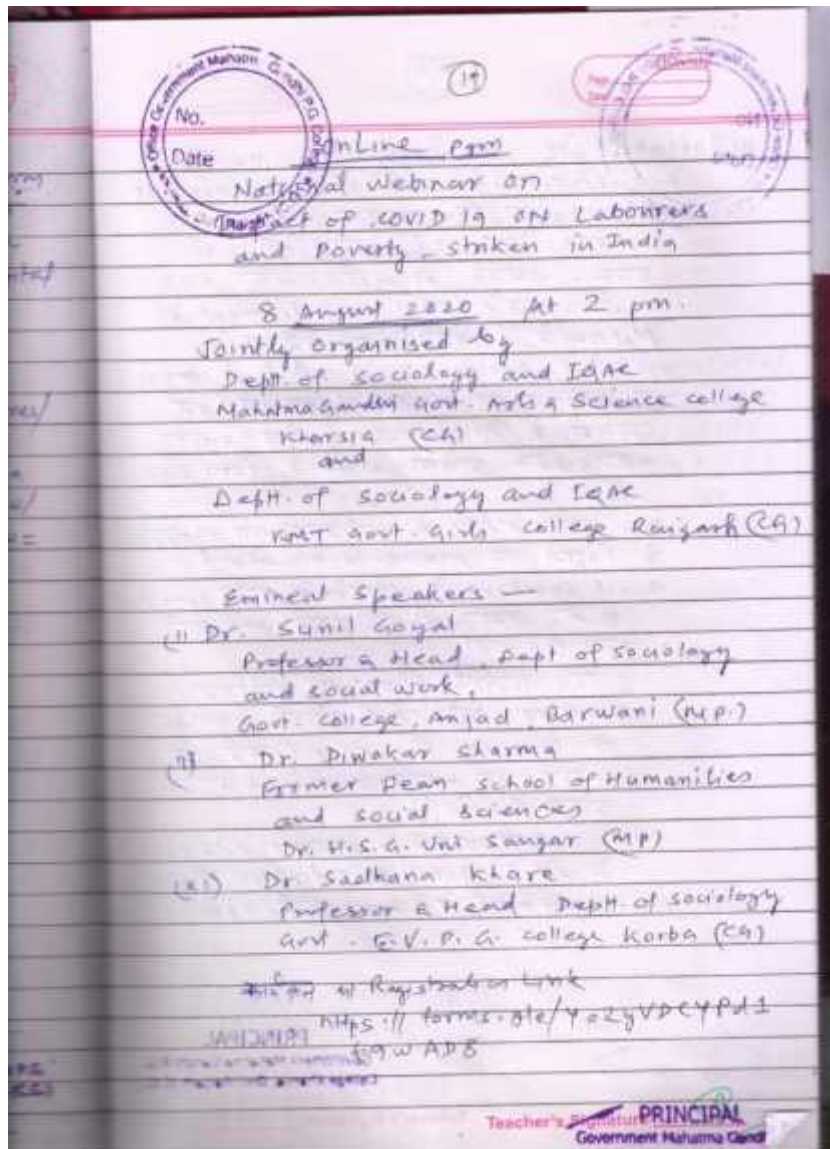 19
No.
Date
Online pgm
National Webinar on
Impact of COVID 19 on Labourers
and Poverty striken in India
8 August 2020 At 2 pm.
Jointly organised by
Deptt. of Sociology and IQAC
Mahatma Gandhi Govt. Arts & Science college
Kharsia (CG)
and
Deptt. of Sociology and IQAC
KMT Govt. Girls college Raigarh (CG)
Eminent Speakers —
(i) Dr. Sunil Goyal
Professor & Head, Dept of sociology
and social work,
Govt. college, Anjad, Barwani (M.P.)
(ii) Dr. Diwakar Sharma
Former Dean school of Humanities
and social sciences
Dr. H.S.G. Uni Sangar (MP)
Dr. Sadhana Khare
Professor & Head Deptt. of sociology
Govt. E.V.P.G. college Korba (CG)
Registration Link
https://forms.gle/
Teacher's Signature
PRINCIPAL
Government Mahatma Gandhi